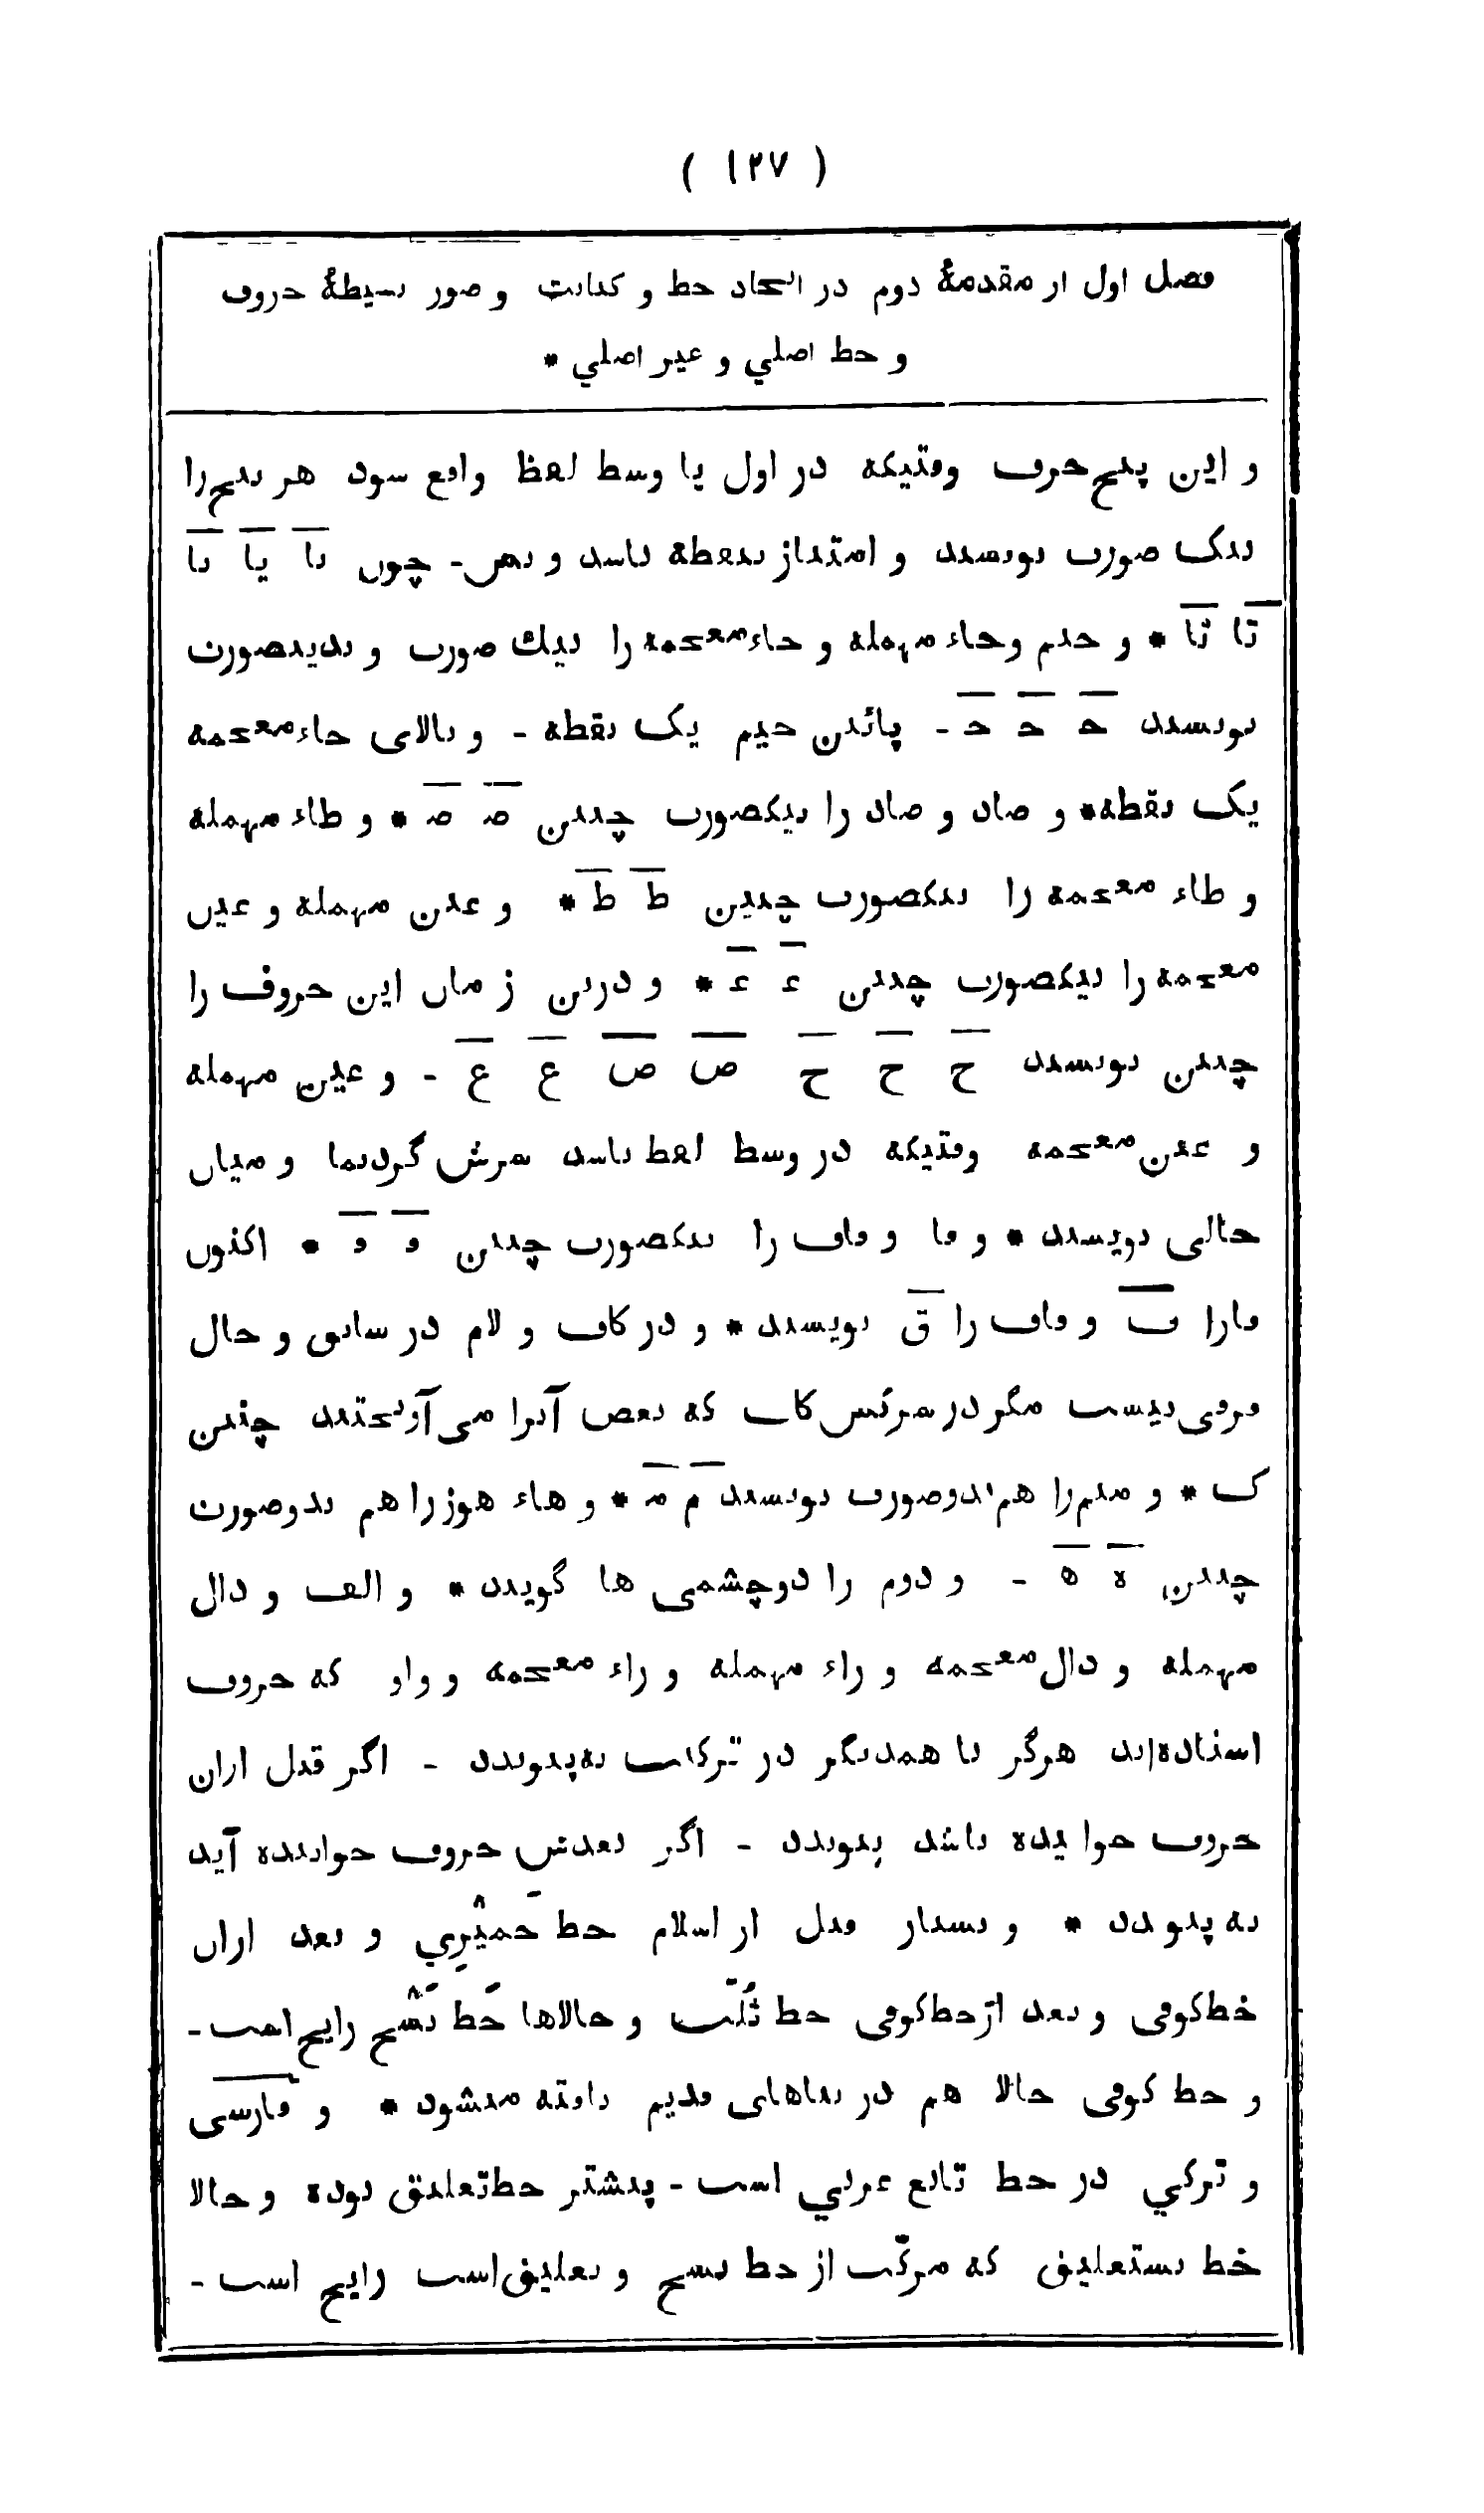 ( ۱۲۷ )
فصل اول از مقدمهٔ دوم در اتحاد خط و کتابت و صور بسیطهٔ حروف
و خط اصلي و غیر اصلي *
و این پنج حرف وقتیکه در اول یا وسط لفظ واقع شود هر پنج را
بیک صورت نویسند و امتیاز بنقطه باشد و بس - چون نا یا با
تا ثا * و جیم وحاء مهمله و خاء معجمه را بیك صورت و بدینصورت
نویسند حـ حـ حـ - پائین جیم یک نقطه - و بالای خاء معجمه
یک نقطه * و صاد و ضاد را بیکصورت چنین صـ صـ * و طاء مهمله
و ظاء معجمه را بیکصورت چنین ط ط * و عین مهمله و غین
معجمه را بیکصورت چنین عـ عـ * و درین زمان این حروف را
چنین نویسند ح ح ح ص ص ع ع - و عین مهمله
و غین معجمه وقتیکه در وسط لفظ باشد سرش گردنما و میان
خالی نویسند * و فا و قاف را بیکصورت چنین و و * اکنون
فارا ف و قاف را ق نویسند * و در کاف و لام در سابق و حال
فرقی نیست مگر در سرکش کاف که بعض آنرا می آویختند چنین
ک * و میم را هم بدوصورت نویسند م مـ * و هاء هوز را هم بدوصورت
چنین ه ھ - و دوم را دوچشمی ها گویند * و الف و دال
مهمله و ذال معجمه و راء مهمله و زاء معجمه و واو که حروف
استاده اند هرگز با همدیگر در ترکیب نه پیوندند - اگر قبل ازان
حروف خوابیده باشد پیوندد - اگر بعدش حروف خوابیده آید
نه پیوندد * و بسیار قبل از اسلام خط حمیَري و بعد ازان
خط کوفی و بعد از خط کوفی خط ثُلُث و حالاها خَط نَسْخ رایج است -
و خط کوفی حالا هم در بناهای قدیم یافته میشود * و فارسی
و ترکي در خط تابع عربي است - پیشتر خط تعلیق بوده و حالا
خط نستعلیق که مرکّب از خط نسخ و تعلیق است رایج است -